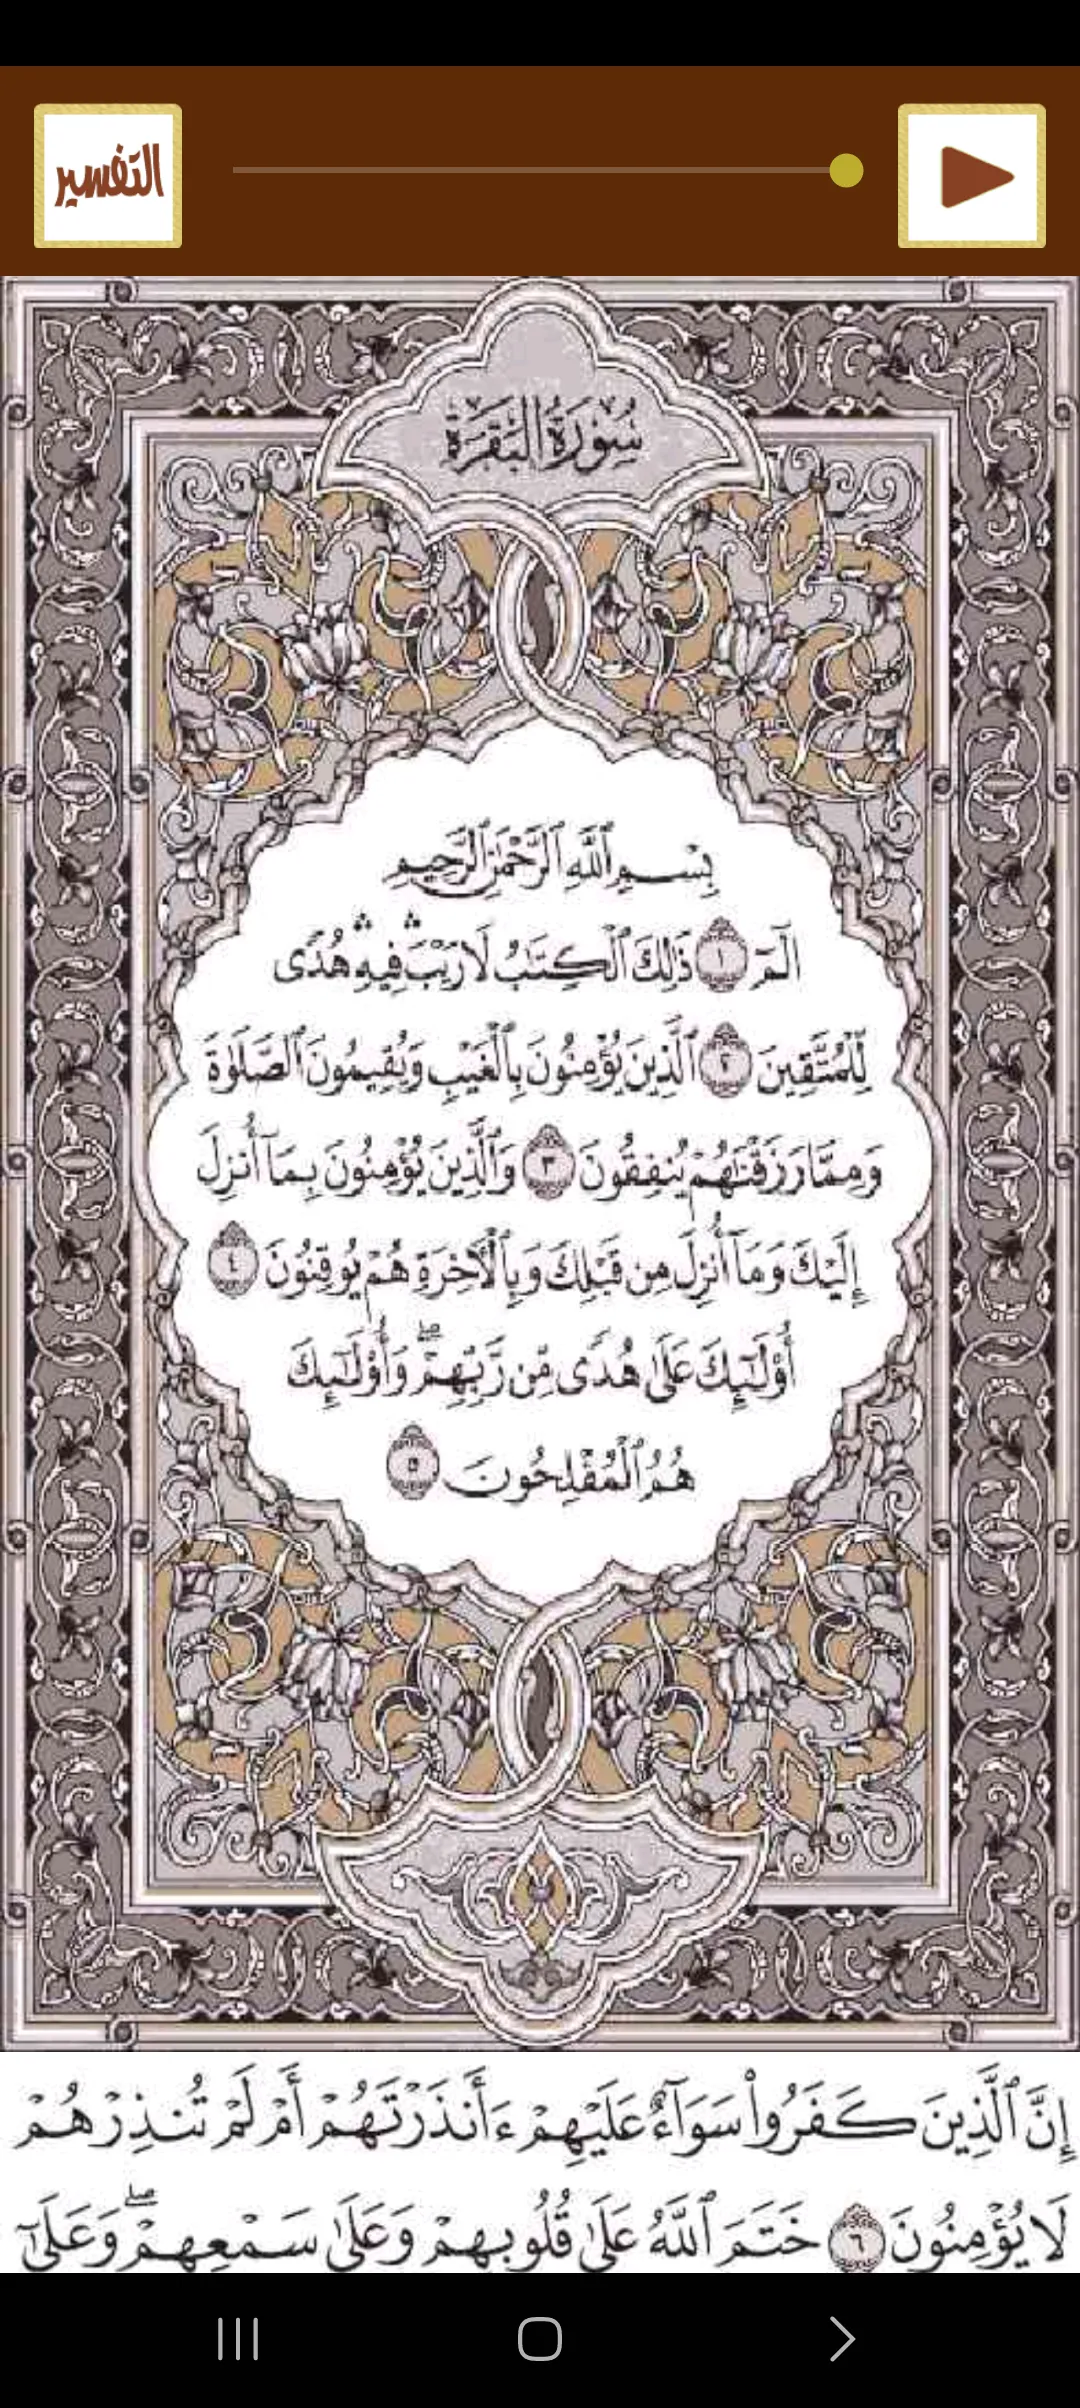 التفسير
سُورَةُ الْبَقَرَةِ
بِسْمِ ٱللَّهِ ٱلرَّحْمَٰنِ ٱلرَّحِيمِ
الٓمٓ ١ ذَٰلِكَ ٱلْكِتَٰبُ لَا رَيْبَ ۛ فِيهِ ۛ هُدًى
لِّلْمُتَّقِينَ ٢ ٱلَّذِينَ يُؤْمِنُونَ بِٱلْغَيْبِ وَيُقِيمُونَ ٱلصَّلَوٰةَ
وَمِمَّا رَزَقْنَٰهُمْ يُنفِقُونَ ٣ وَٱلَّذِينَ يُؤْمِنُونَ بِمَآ أُنزِلَ
إِلَيْكَ وَمَآ أُنزِلَ مِن قَبْلِكَ وَبِٱلْءَاخِرَةِ هُمْ يُوقِنُونَ ٤
أُو۟لَٰٓئِكَ عَلَىٰ هُدًى مِّن رَّبِّهِمْ ۖ وَأُو۟لَٰٓئِكَ
هُمُ ٱلْمُفْلِحُونَ ٥
إِنَّ ٱلَّذِينَ كَفَرُوا۟ سَوَآءٌ عَلَيْهِمْ ءَأَنذَرْتَهُمْ أَمْ لَمْ تُنذِرْهُمْ
لَا يُؤْمِنُونَ ٦ خَتَمَ ٱللَّهُ عَلَىٰ قُلُوبِهِمْ وَعَلَىٰ سَمْعِهِمْ ۖ وَعَلَىٰٓ